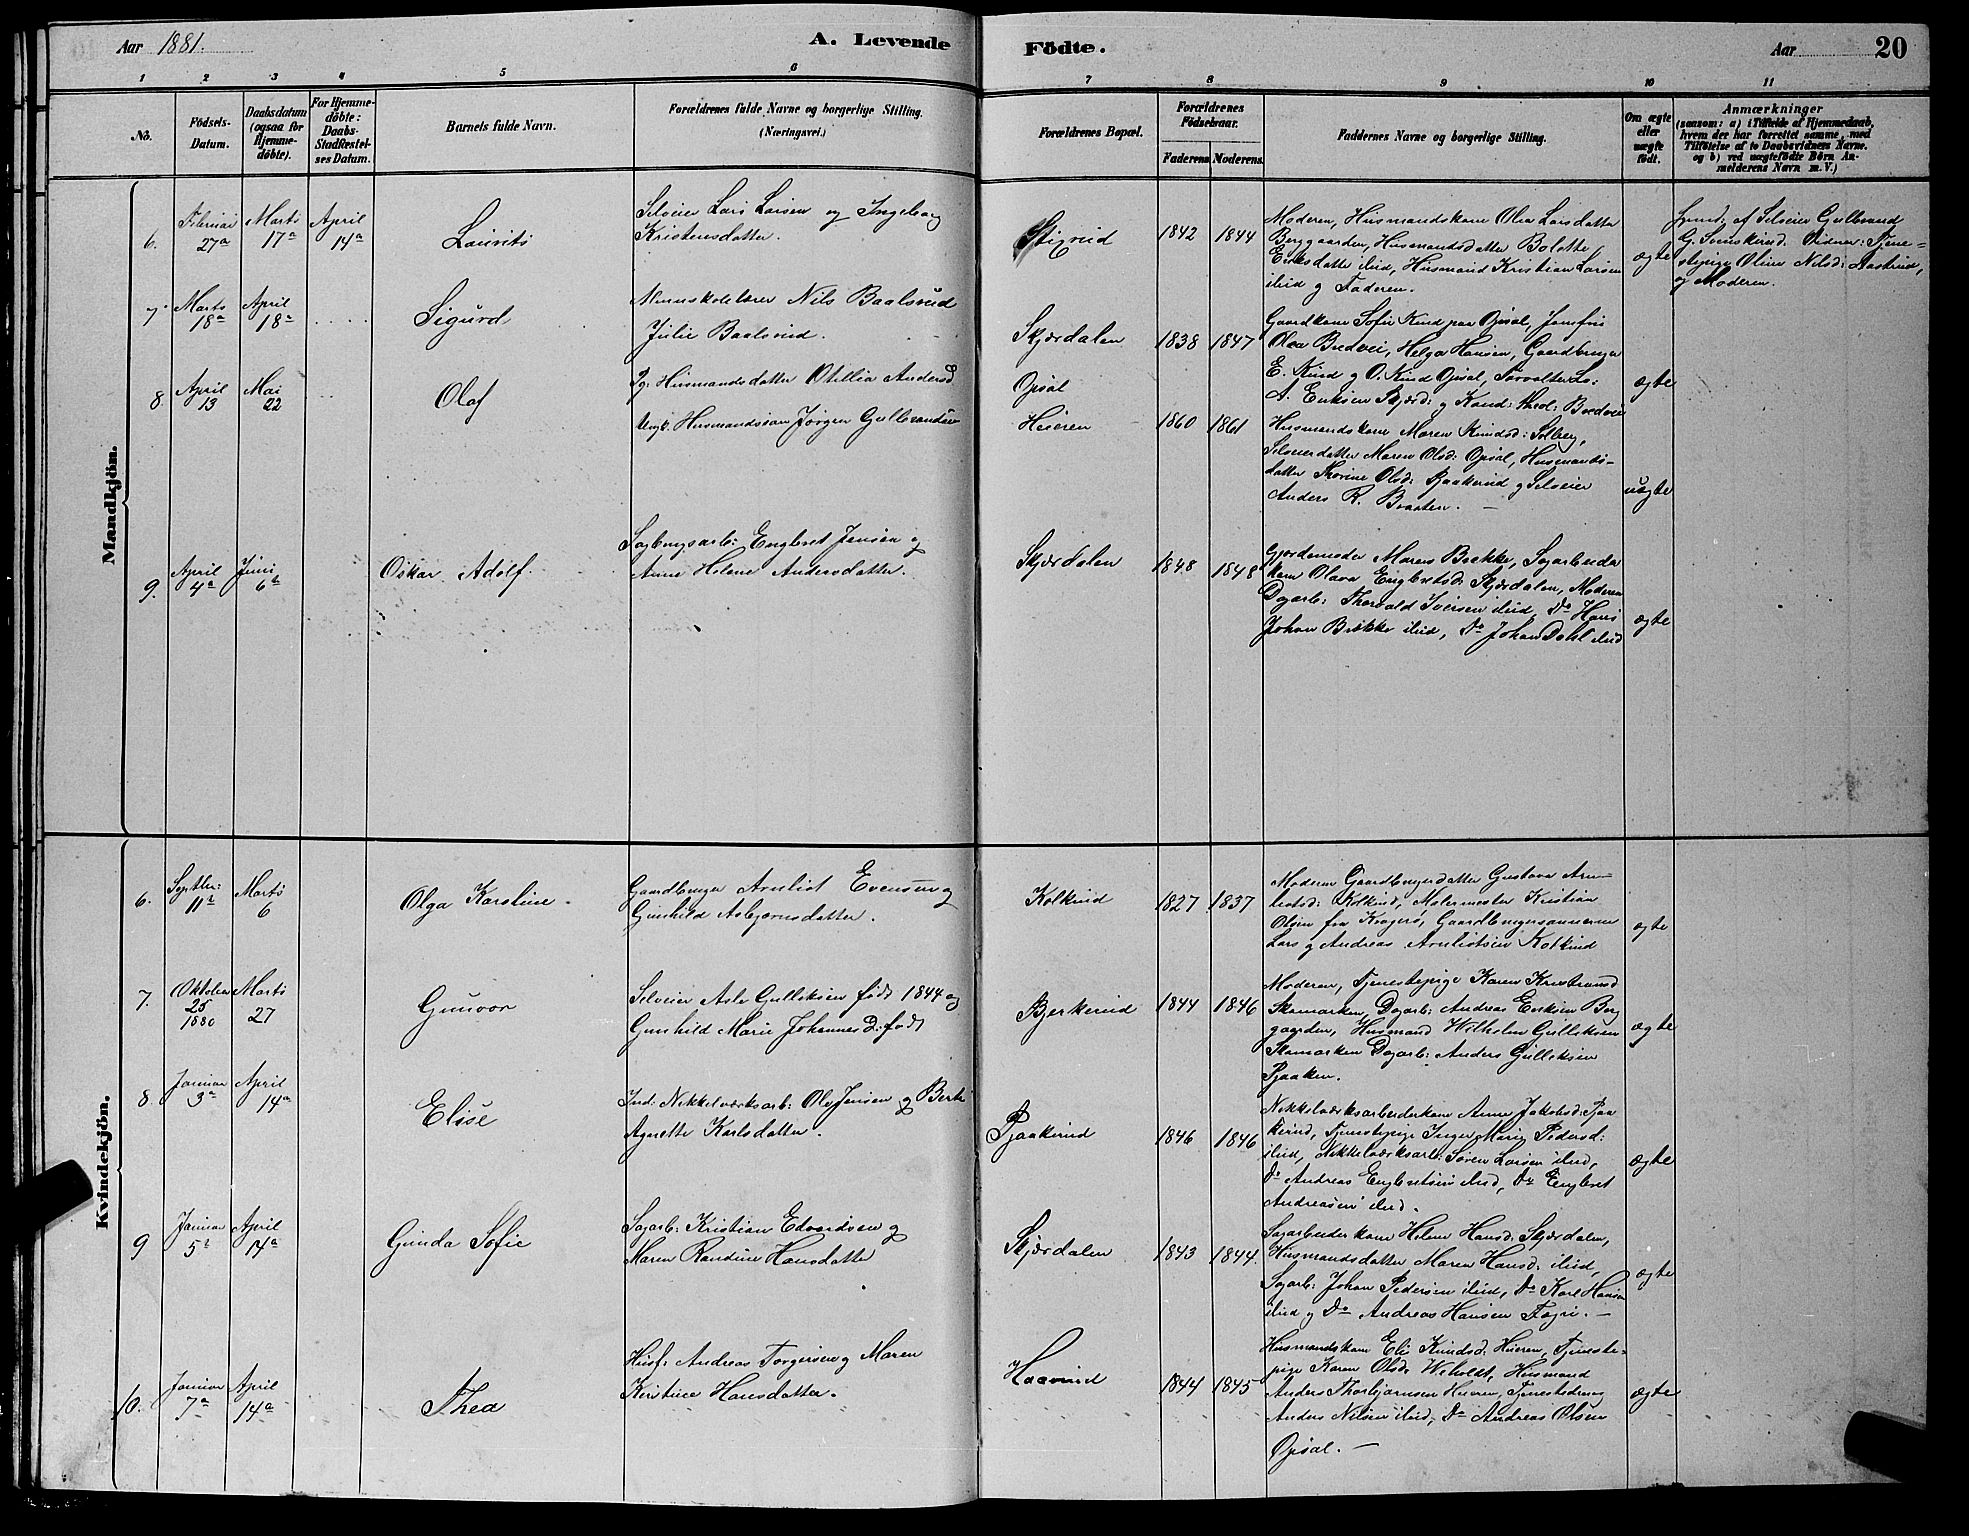 Aar 1881.
A. Levende Födte.
Aar
20
1 2 3 4 5 6 7 8 9 10 11
No.
Födsels-
Datum.
Daabsdatum
(ogsaa for
Hjemme-
döbte).
For Hjemme-
döbte:
Daabs-
Stadfæstel-
ses Datum.
Barnets fulde Navn.
Forældrenes fulde Navne og borgerlige Stilling.
(Næringsvei.)
Forældrenes Bopæl.
Forældrenes
Födselsaar.
Faderens
Moderens
Faddernes Navne og borgerlige Stilling.
Om ægte
eller
uægte
födt.
Anmærkninger
(saasom: a) i Tilfælde af Hjemmedaab,
hvem der har forrettet samme, med
Tilföielse af to Daabsvidners Navne.
og b) ved uægtefödte Börn An-
melderens Navn m. V.)
Mandkjön.
6.
Februar
27a
Marts
17a
April
14a
Laurits
Selveier Lars Larsen og Ingeborg
Kristensdatter.
Stigrud
1842
1844
Moderen, Husmandskone Olea Larsdatter
Berggaarden, Husmandsdatter Bolette
Eriksdatter ibid, Husmand Kristian Larsen
ibid og Faderen.
ægte
af Selveier Gulbrand
G. Svenskerud. Vidner: Tjene-
stepige Oline Nilsd:
og Moderen.
7
Marts
18a
April
18a
Sigurd
Nils Baalsrud
Julie Baalsrud.
Skjærdalen
1838
1847
Gaardkone Sofie Kind paa Opsal, Jomfru
Olea Bredvei, Helga Hansen, Gaardbruger
E. Kind og O. Kind Opsal,
A. Eriksen Skjærd: og Kand: theol: Bredvei
ægte
8.
April
13
Mai
22
Olaf
Pg. Husmandsdatter Otillia Andersd.
Ungk. Husmandssøn Jørgen Gulbrandsen
Opsal
Hieren
1860
1861
Husmandskone Maren Knudsd: Solberg,
Selveierdatter Maren Olsd: Opsal, Husmands-
datter Thorine Olsd: Pjaakerud og Selveier
Anders R. Braaten.
uægte
9.
April
4a
Juni
6t
Oskar Adolf.
Sagbrugsarb: Engebret Jensen og
Anne Helene Andersdatter.
Skjærdalen
1848
1848
Gjordemoder Maren Bække, Sagarbeider
kone Olava Engbretsd: Skjærdalen, Moderen
Dagarb: Thorvald Iversen ibid, Do Hans
Johan Bække ibid, Do Johan Dahl ibid
ægte
Kvindekjön.
6.
Septbr:
11t
Marts
6
Olga Karoline.
Gaardbruger Arnliot Evensen og
Gunhild Asbjørnsdatter.
Kolkind
1827
1837
Moderen Gaardbrugerdatter Gustava Arn-
liotsd: Kolkind, Malermester Kristian
Olsen fra Kragerø, Gaardbrugersønnerne
Lars og Andreas Arnliotsen Kolkind
ægte
7.
Oktober
25
1880
Marts
27
Gunvor
Selveier Asle Gulliksen født 1844 og
Gunhild Marie Johannes D: født
Bjerkerud
1844
1846
Moderen, Tjenestepige Karen
Skamarken, Dagarb: Andreas Eriksen Berg
gaarden, Husmand Wilhelm Gulliksen
Skamarken Dagarb: Anders Gulliksen
Pjaaken.
ægte
8.
Januar
3a
April
14a
Elise
Ind: Nikkelværksarb: Ole Jensen og Berte
Agnette Karlsdatter.
Pjaakerud
1846
1846
Nikkelværksarbeiderkone Anne Jakobsd: Pjaa
kerud, Tjenestepige Inger Marie Pedersd:
ibid, Nikkelværksarb: Søren Larsen ibid,
Do Andreas Engbretsen ibid, Do Engebret
Andreasen ibid.
ægte
9
Januar
5t
April
14a
Gunda Sofie
Sagarb: Kristian Edvardsen og
Maren Randine Hansdatter
Skjærdalen
1843
1844.
Sagarbeiderkone Helene Hansd: Skjærdalen,
Husmandsdatter Maren Hansd: ibid,
Sagarb: Johan Pedersen ibid, Do Karl Hansen
ibid og Do Andreas Hansen
ægte
10.
Januar
7a
April
14a
Thea
Husf: Andreas Torgersen og Maren
Kristine Hansdatter.
Haavind
1844
1845
Husmandskone Eli Knudsd: Hieren, Tjeneste-
pige Karen Olsd: Weholdt, Husmand
Anders Thorbjørnsen Hieren, Tjenestedreng
Anders Nilsen ibid, Do Andreas Olsen
Opsal.
ægte